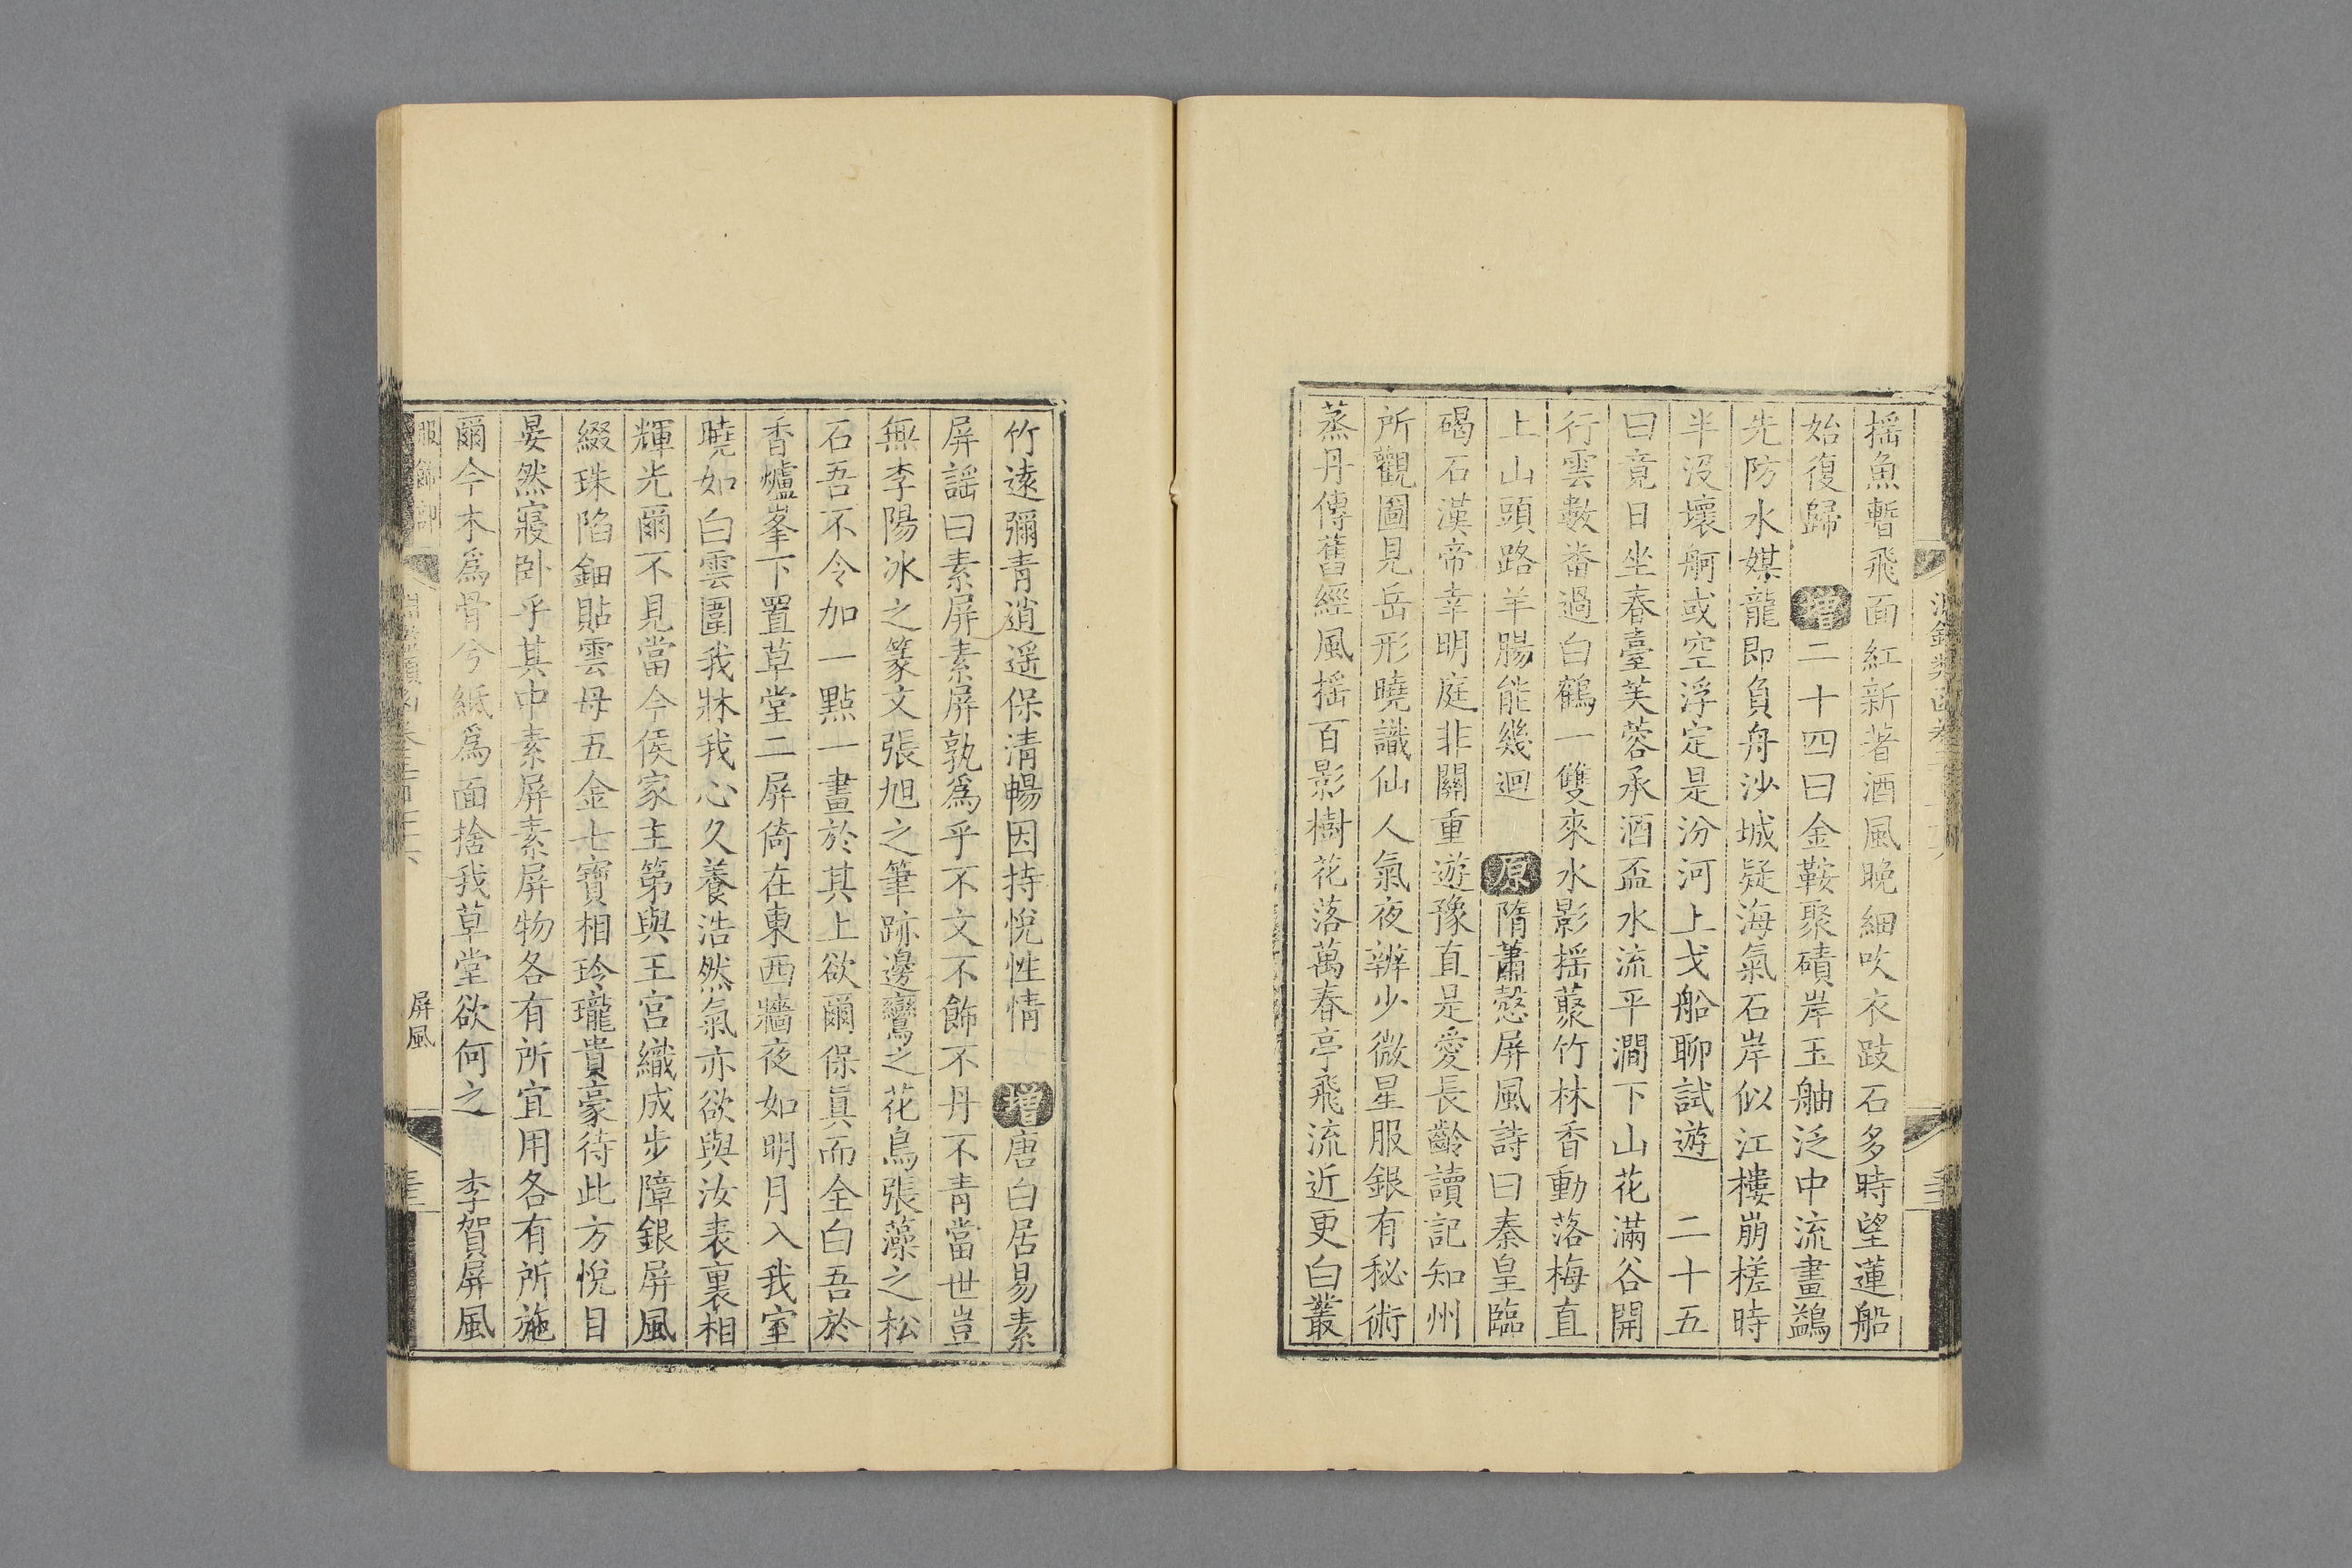 搖魚暫飛面紅新著酒風晚細吹衣跂石多時望蓮船
始復歸 增二十四曰金鞍聚磧岸玉舳泛中流畫鷁
先防水媒龍即負舟沙城疑海氣石岸似江樓崩槎時
半没壞舸或空浮定是汾河上戈船聊試遊 二十五
曰竟日坐春臺芙蓉承酒盃水流平澗下山花滿谷開
行雲數番過白鶴一雙來水影揺藂竹林香動落梅直
上山頭路羊腸能幾迴 原隋蕭慤屏風詩曰秦皇臨
碣石漢帝幸明庭非關重遊豫直是愛長齡讀記知州
所觀圖見岳形曉識仙人氣夜辨少微星服銀有秘術
蒸丹傳舊經風揺百影樹花落萬春亭飛流近更白叢
竹遠彌青逍遥保清暢因持悅性情 增唐白居易素
屏謡曰素屏素屏孰為乎不文不飾不丹不青當世豈
無李陽冰之篆文張旭之筆跡邊鸞之花鳥張藻之松
石吾不令加一點一畫於其上欲爾保真而全白吾於
香爐峯下置草堂二屏倚在東西牆夜如明月入我室
曉如白雲圍我牀我心久養浩然氣亦欲與汝表裏相
輝光爾不見當今侯家主第與王宫織成步障銀屏風
綴珠陷鈿貼雲母五金七寶相玲瓏貴豪待此方悅目
晏然寢卧乎其中素屏素屏物各有所宜用各有所施
爾今木為骨兮紙為面捨我草堂欲何之 李賀屏風
服飾部
屏風